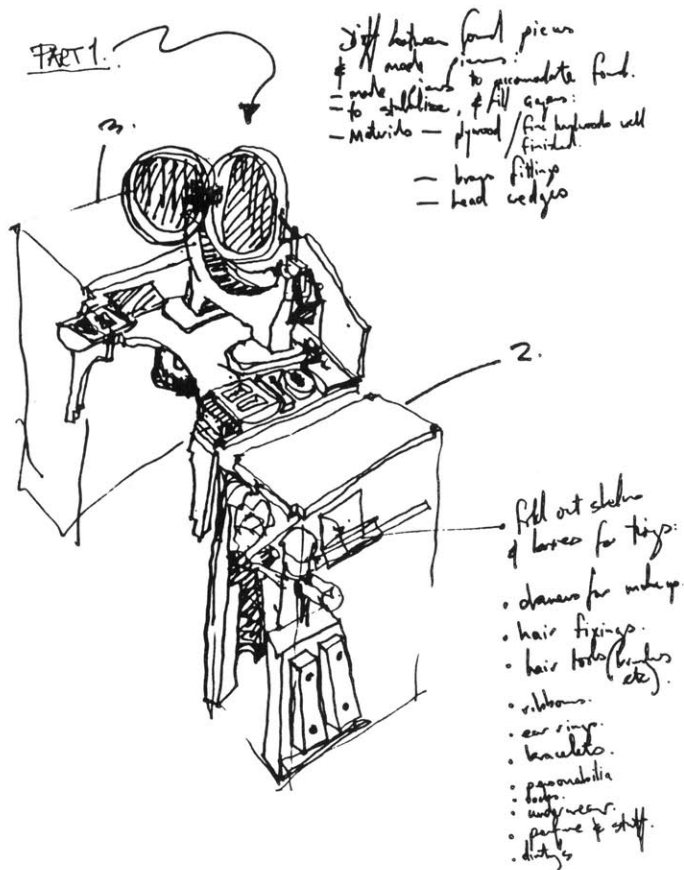 PART 1.
Diff between found pieces
& made pieces:
– made pieces to accomodate found.
– to stabilize, & fill gaps:
– Materials – plywood / fine hardwoods well
finished.
– brass fittings
– lead wedges
3.
2.
• fold out shelves
& boxes for things:
• drawers for make up.
• hair fixings.
• hair tools (brushes
etc).
• ribbons.
• ear rings.
• bracelets.
• personabilia
•
• underwear.
• perfume & stuff.
•